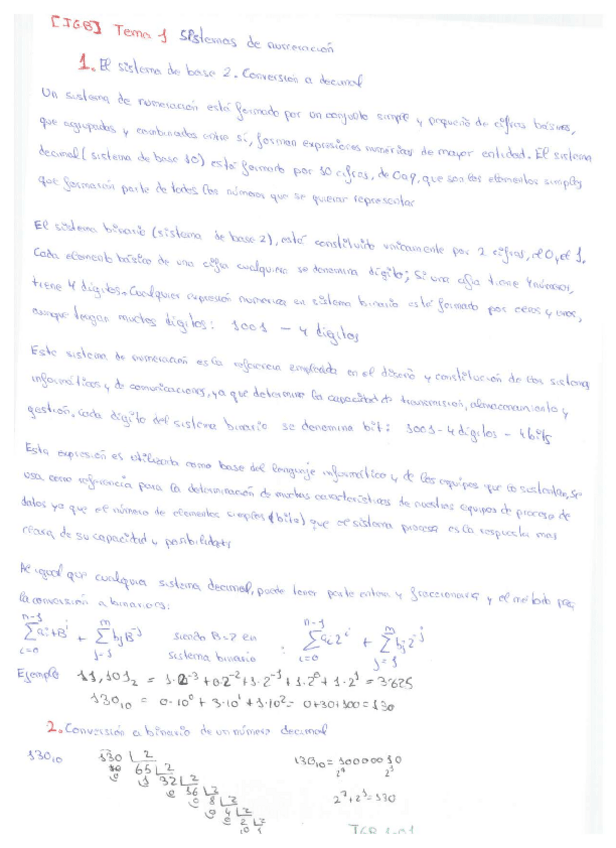 [IGB] Tema 1 Sistemas de numeración
1. El sistema de base 2. Conversión a decimal
Un sistema de numeración está formado por un conjunto simple y pequeño de cifras básicas,
que agrupadas y combinadas entre sí, forman expresiones numéricas de mayor entidad. El sistema
decimal (sistema de base 10) está formado por 10 cifras, de 0 a 9, que son los elementos simples
que formarán parte de todos los números que se quieran representar
El sistema binario (sistema de base 2), está constituido únicamente por 2 cifras, el 0 y el 1.
Cada elemento básico de una cifra cualquiera se denomina dígito; Si una cifra tiene 4 números,
tiene 4 dígitos. Cualquier expresión numérica en sistema binario está formado por ceros y unos,
aunque tengan muchos dígitos: 1001 - 4 dígitos
Este sistema de numeración es la referencia empleada en el diseño y constitución de los sistemas
informáticos y de comunicaciones, ya que determina la capacidad de transmisión, almacenamiento y
gestión. Cada dígito del sistema binario se denomina bit: 1001 - 4 dígitos - 4 bits
Esta expresión es utilizada como base del lenguaje informático y de los equipos que lo sustentan, se
usa como referencia para la determinación de muchas características de nuestros equipos de proceso de
datos ya que el número de elementos simples (bits) que el sistema procesa es la respuesta más
clara de su capacidad y posibilidades
Al igual que cualquier sistema decimal, puede tener parte entera y fraccionaria y el método para
la conversión a binario es:
n-1 Σ i=0 ai·B^i + m Σ j=1 bj B^-j siendo B=2 en sistema binario : n-1 Σ i=0 ai 2^i + m Σ j=1 bj 2^-j
Ejemplo 11,101₂ = 1·2^-3 + 0·2^-2 + 1·2^-1 + 1·2^0 + 1·2^1 = 3'625
130₁₀ = 0·10^0 + 3·10^1 + 1·10^2 = 0+30+100=130
2. Conversión a binario de un número decimal
130₁₀ 130 | 2 130₁₀ = 10000010
10 65 | 2 2^7 2^1
0 1 32 | 2
0 16 | 2 2^7+2^1=130
0 8 | 2
0 4 | 2
0 2 | 2
0 1